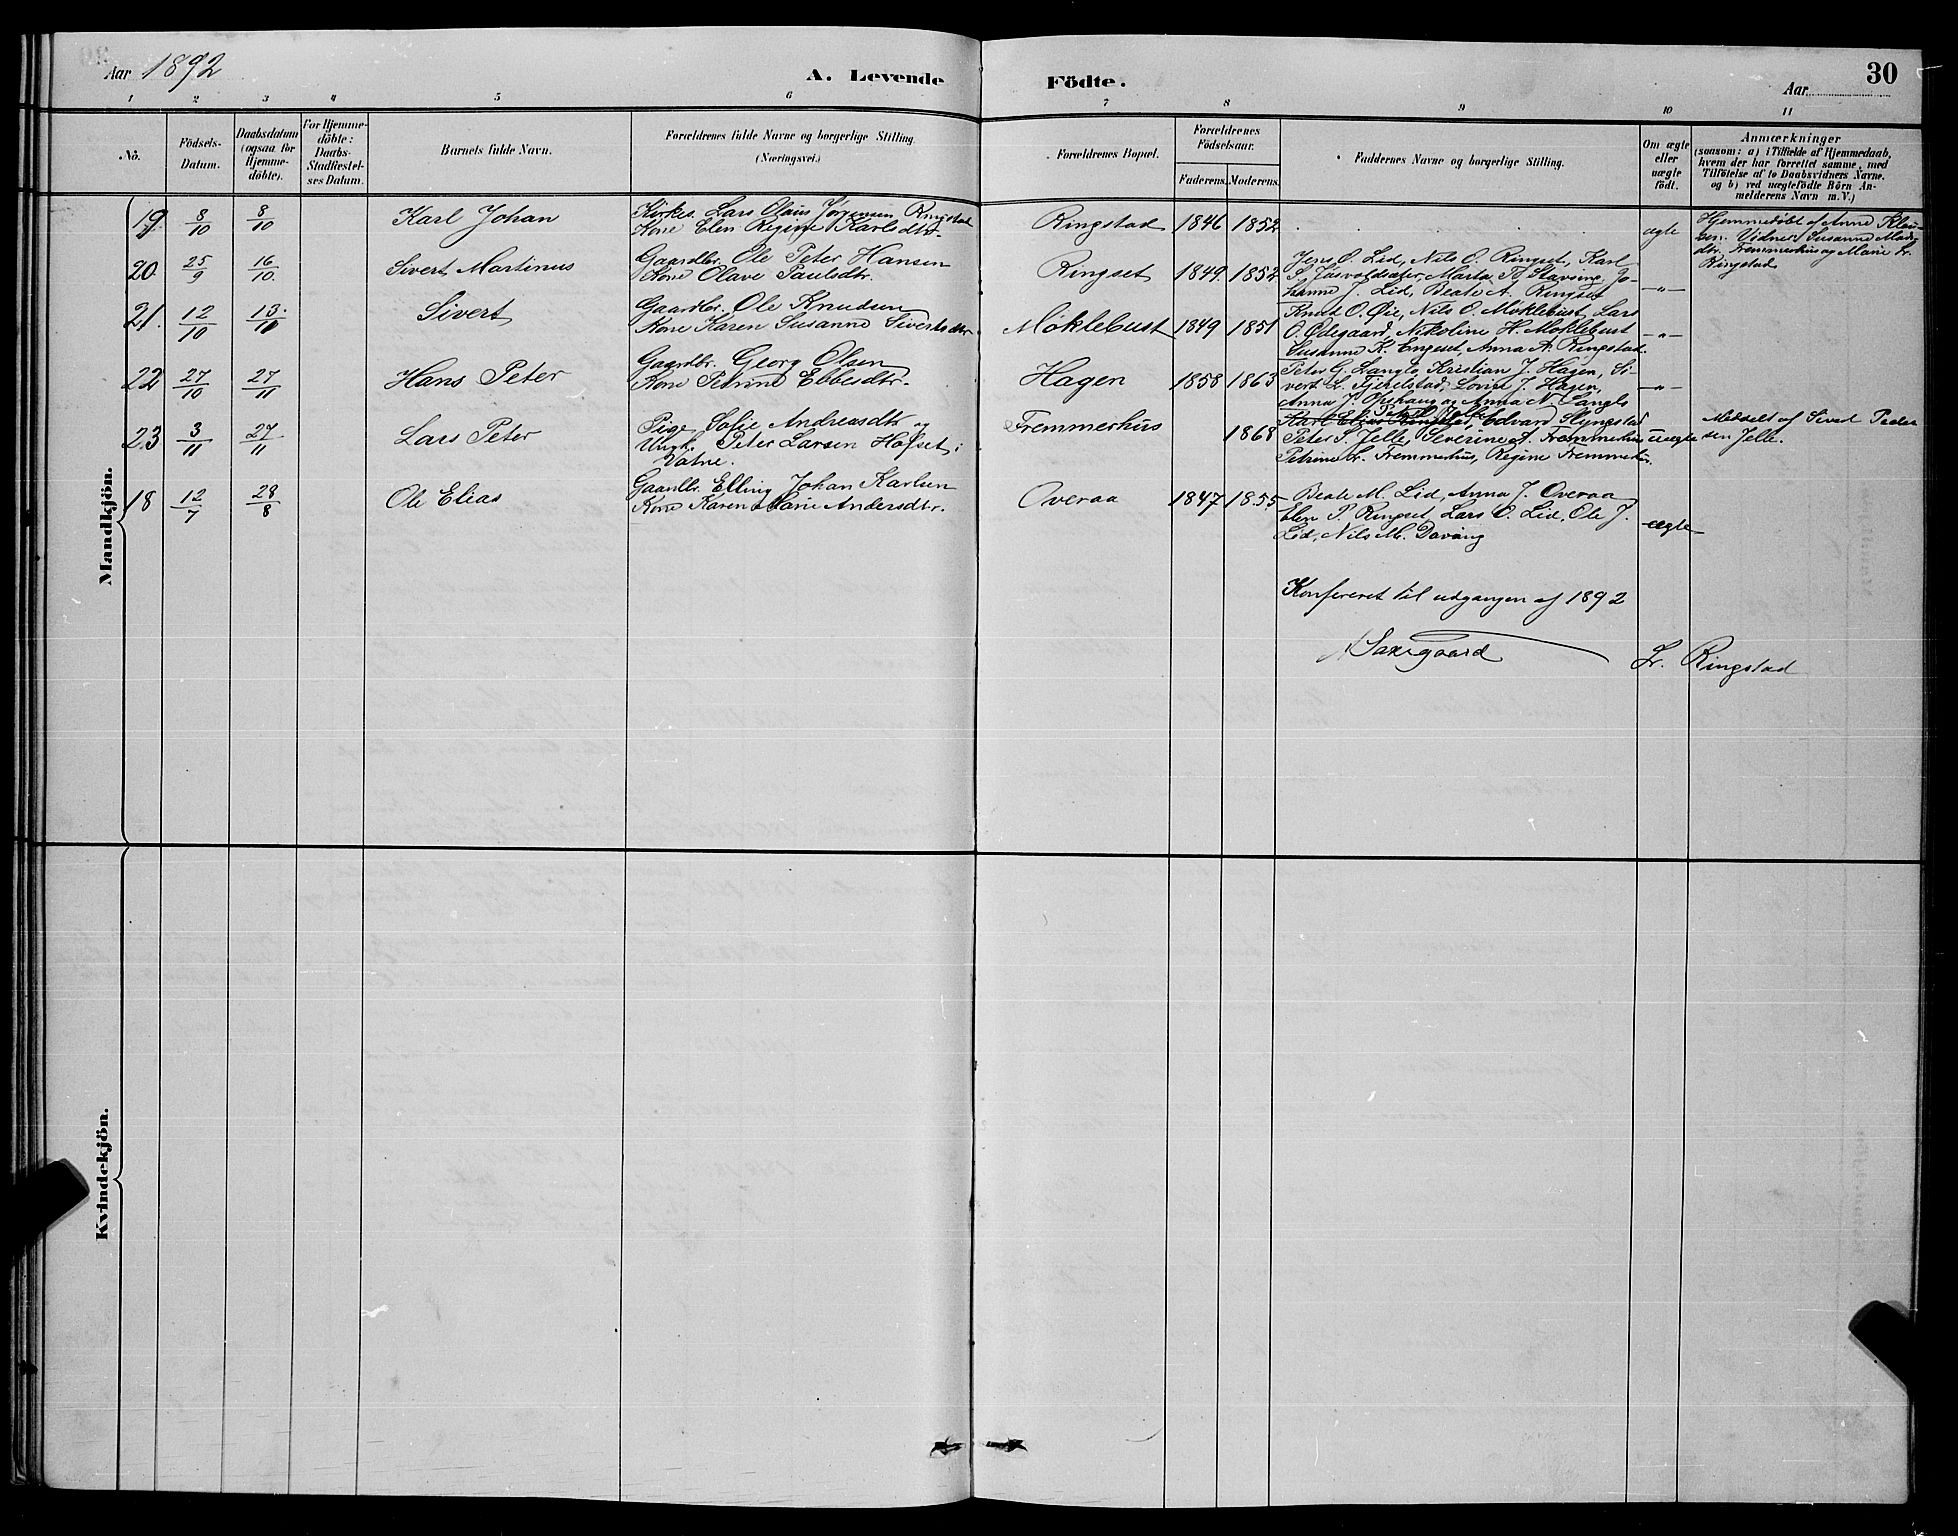 Aar 1892
A. Levende Födte.
30
Aar
1 2 3 4 5 6 7 8 9 10 11
Nô.
Födsels-
Datum.
Daabsdatum
(ogsaa for
Hjemme-
döbte).
For Hjemme-
döbte:
Daabs-
Stadfæstel-
ses Datum.
Barnets fulde Navn.
Forældrenes fulde Navne og borgerlige Stilling.
(Næringsvei.)
Forældrenes Bopæl.
Forældrenes
Födselsaar.
Faderens. Moderens.
Faddernes Navne og borgerlige Stilling.
Om ægte
eller
uægte
födt.
Anmærkninger
(saasom: a) i Tilfælde af Hjemmedaab,
hvem der har forrettet samme, med
Tilföielse af to Daabsvidners Navne.
og b) ved uægtefödte Börn An-
melderens Navn m. V.)
Mandkjön.
19. 8/10 8/10 Karl Johan
Kirkes. Lars Olaus Jørgensen Ringstad
Kone Elen Regine Karlsdtr.
Ringstad 1846 1852
ægte
Hjemmedøbt af Anne Klau-
sen. Vidner Susanne Mads-
dtr. Fremmerhus og Marie Lr.
Ringstad
20. 25/9 16/10. Sivert Martinus
Gaardbr. Ole Peter Hansen
Kone Olave Paulsdtr.
Ringset 1849 1852
Jens O. Lid, Nils O. Ringset, Karl
S. Jusvoldsæter, Marta P. Stavseng, Jo-
hanne J. Lid, Beate A. Ringset
-"-
21. 12/10 13./11 Sivert
Gaardbr. Ole Knudsen
Kone Karen Susanne Sivertsdtr.
Møklebust 1849 1851
Knut O. Øie, Nils O. Møklebust, Lars
O. Ødegaard, Nikoline H. Møklebust
Susanne K. Engeset, Anna A. Ringstad.
-"-
22 27/10 27/11 Hans Peter
Gaardbr. Georg Olsen
Kone Petrine Ebbesdtr.
Hagen 1858 1863
Peter G. Langlo, Kristian J. Hagen, Si-
vert L. Fjekelstad, Lovise J. Hagen,
Anna J. Opshaug og Anna N. Langlo
-"-
23 3/11 27/11 Lars Peter
Pige Sofie Andreasdtr og
Ungk. Peter Larsen Hofset i
Vatne.
Fremmerhus 1868
Karl Elias Ringstad, Edvard Slyngstad
Peter S. Jelle, Severine A. Fremmerhus
Petrine L. Fremmerhus, Regine Fremmerhus.
uægte
Meddelt af Sivert Peder
sen Jelle.
18 12/7 28/8 Ole Elias
Gaardbr. Elling Johan Karlsen
Kone Karen Marie Andersdtr.
Overaa 1847 1855
Beate M. Lid, Anna J. Overaa
Elen P. Ringset, Lars O. Lid, Ole J.
Lid, Nils M. Davang
ægte
Konfereret til udgangen af 1892
Saxegaard
L. Ringstad
Kvindekjön.